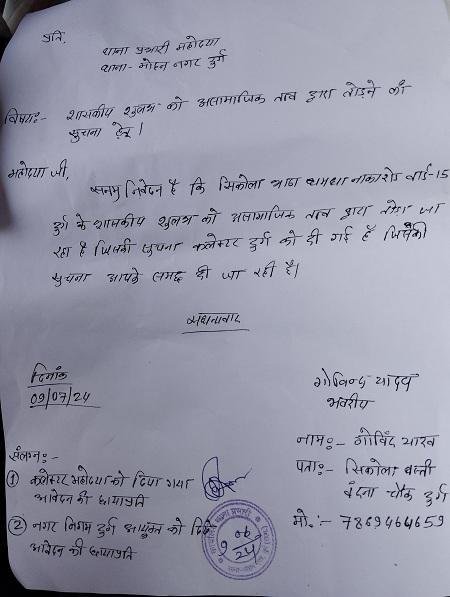 प्रति,
थाना प्रभारी महोदया
थाना - मोहन नगर दुर्ग
विषय:- शासकीय शुलभ को असामाजिक तत्व द्वारा तोड़ने की
सुचना हेतू।
महोदया जी,
सनम्र निवेदन है कि सिकोला भाठा वार्ड-15
दुर्ग के शासकीय शुलभ को असामाजिक तत्व द्वारा तोड़ा जा
रहा है जिसकी सुचना कलेक्टर दुर्ग को दी गई है जिसकी
सुचना आपके समक्ष दी जा रही है।
धन्यवाद
दिनांक
09/07/24
गोविन्द यादव
भवदीय
संलग्न:-
① कलेक्टर महोदया को दिया गया
आवेदन की छायाप्रति
② नगर निगम दुर्ग आयुक्त को दिये
आवेदन की छायाप्रति
नाम:- गोविंद यादव
पता:- सिकोला बस्ती
वंदना चौक दुर्ग
मो.:- 7869464659